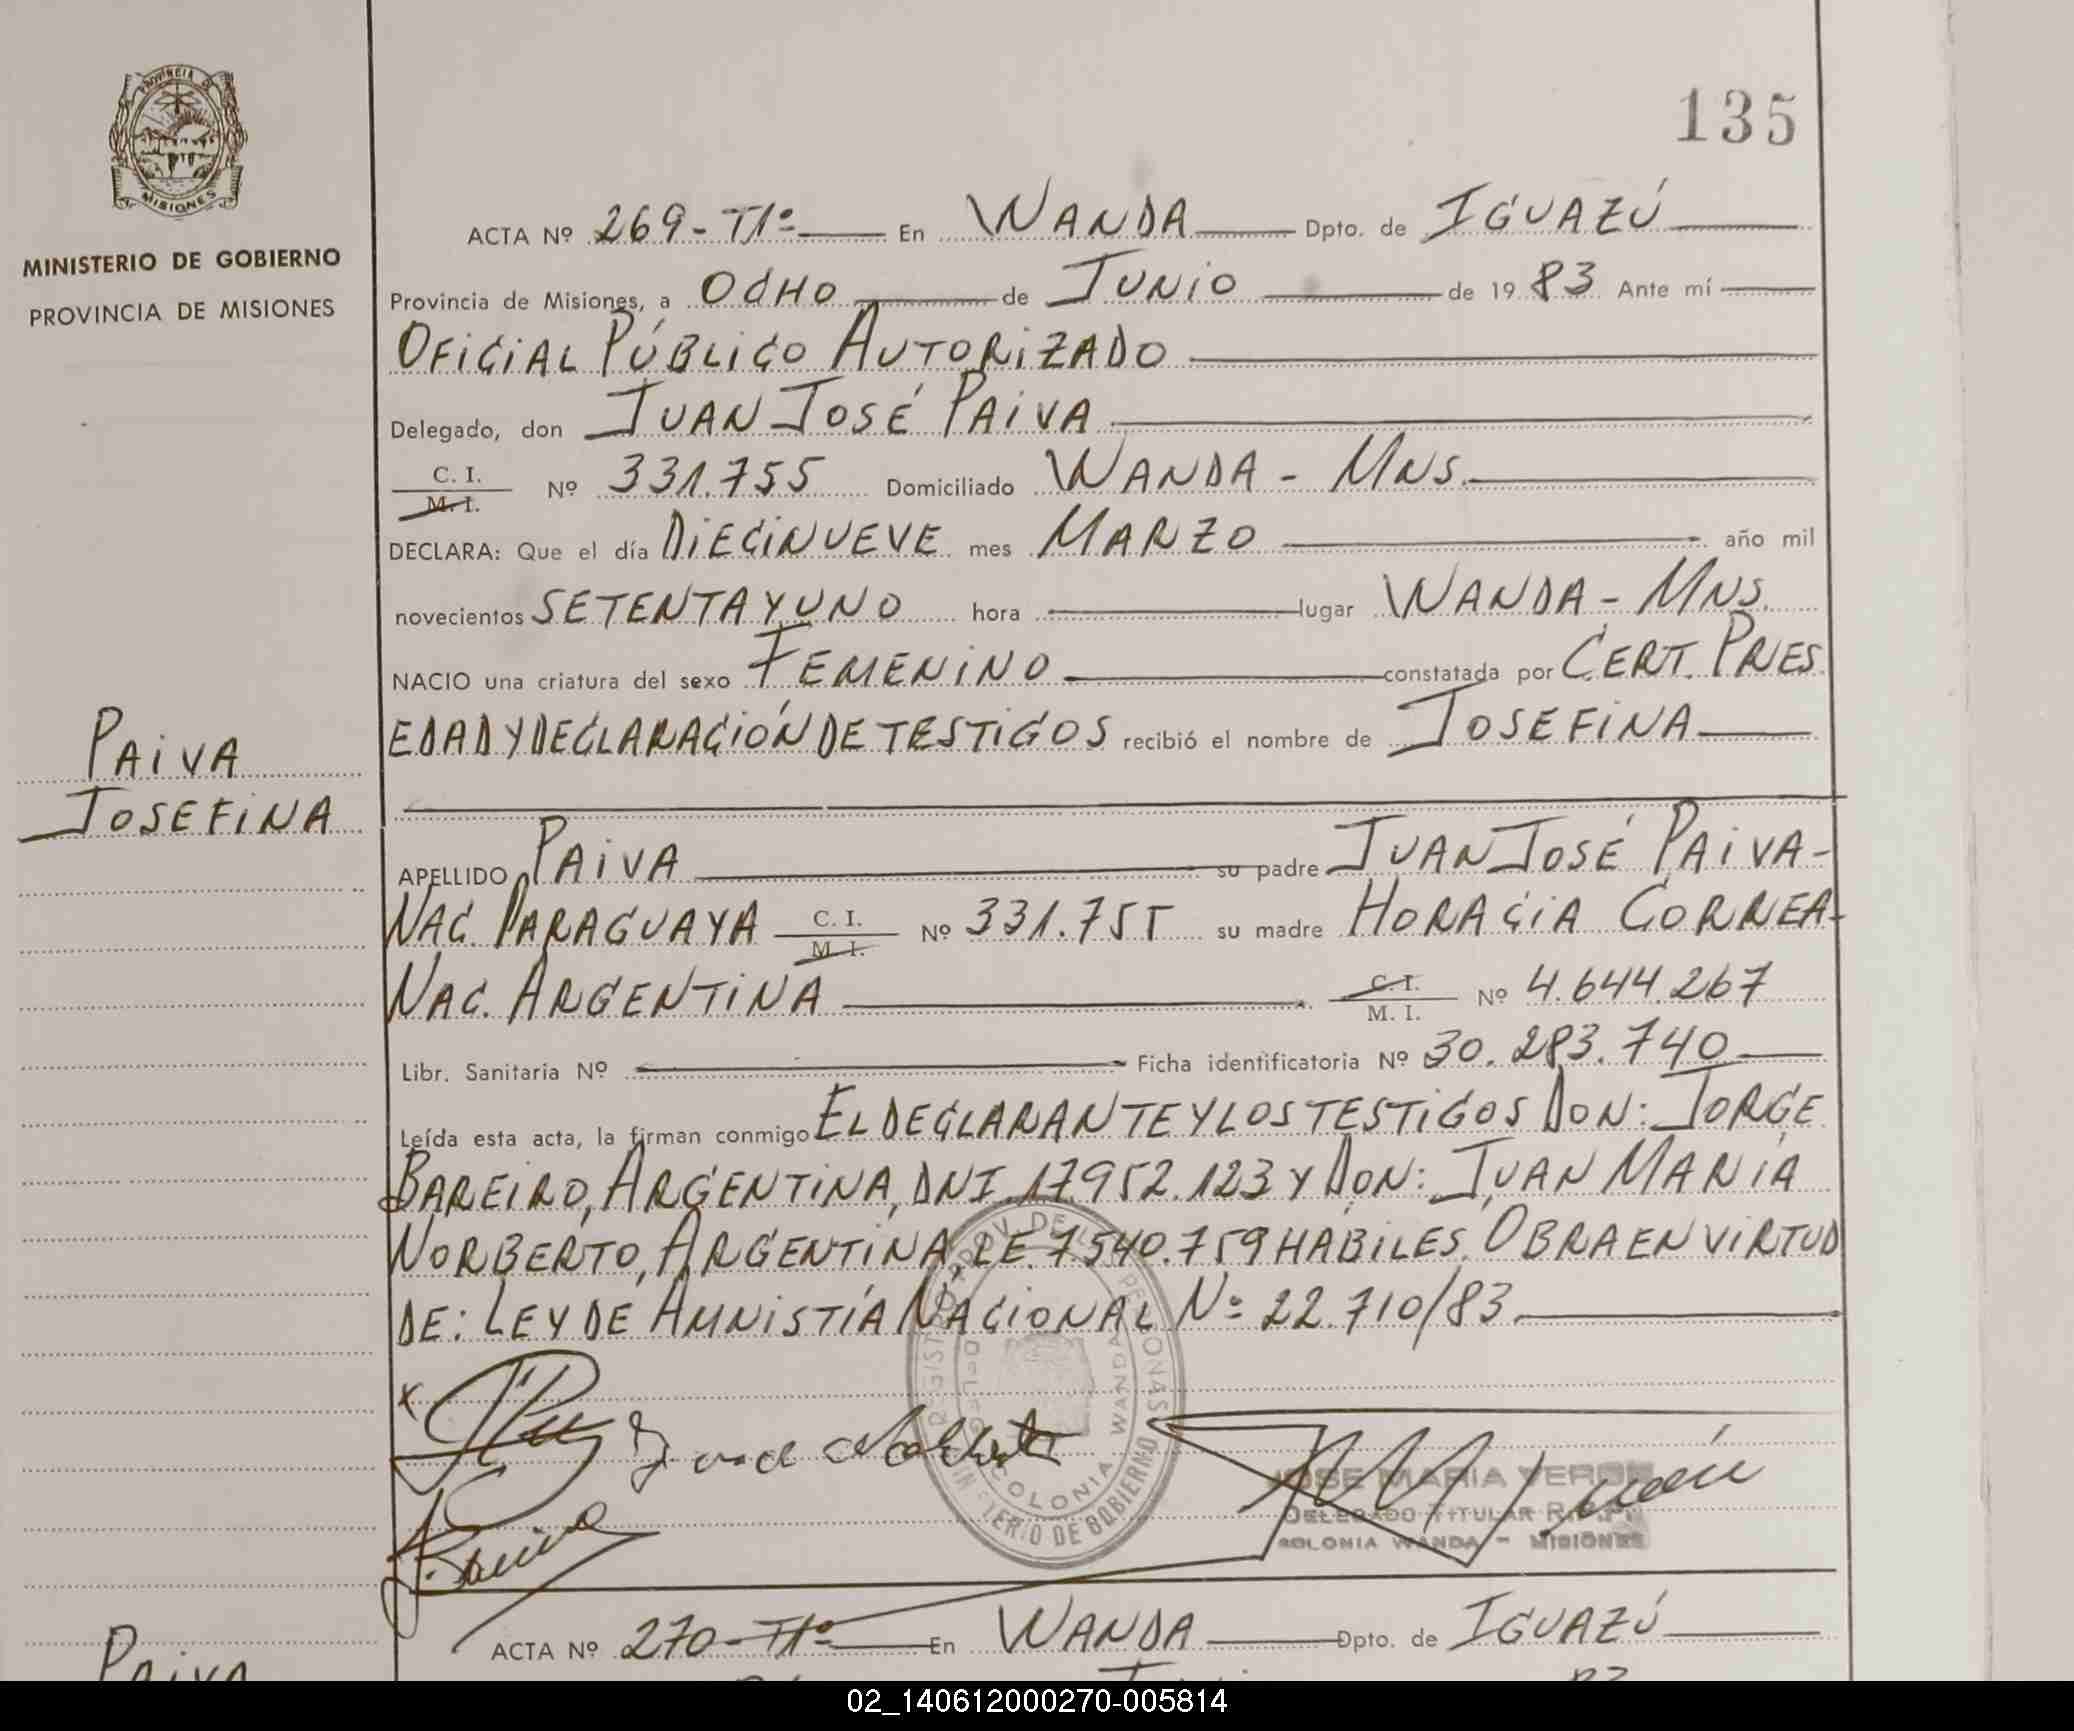 135
PROVINCIA DE
MISIONES
MINISTERIO DE GOBIERNO
PROVINCIA DE MISIONES
ACTA Nº 269-T1º En WANDA Dpto. de IGUAZÚ
Provincia de Misiones, a OCHO de JUNIO de 1983 Ante mí
OFICIAL PÚBLICO AUTORIZADO
Delegado, don JUAN JOSÉ PAIVA
C. I.
M. I. Nº 331.755 Domiciliado WANDA - MNS.
DECLARA: Que el día DIECINUEVE mes MARZO año mil
novecientos SETENTA Y UNO hora lugar WANDA - MNS.
NACIO una criatura del sexo FEMENINO constatada por CERT. PRES
EDAD Y DECLARACIÓN DE TESTIGOS recibió el nombre de JOSEFINA
PAIVA
JOSEFINA
APELLIDO PAIVA su padre JUAN JOSÉ PAIVA-
NAC. PARAGUAYA C. I. M. I. Nº 331.755 su madre HORACIA CORREA-
NAC. ARGENTINA C. I. M. I. Nº 4.644.267
Libr. Sanitaria Nº Ficha identificatoria Nº 30.283.740
Leída esta acta, la firman conmigo EL DECLARANTE Y LOS TESTIGOS DON: JORGE
BAREIRO, ARGENTINA, DNI. 17.952.123 Y DON: JUAN MARIA
NORBERTO, ARGENTINA, LE. 7.540.759 HÁBILES. OBRA EN VIRTUD
DE: LEY DE AMNISTÍA NACIONAL Nº 22.710/83
COLONIA WANDA
MINISTERIO DE GOBIERNO
JOSE MARIA VERON
DELEGADO TITULAR R.P.P.
COLONIA WANDA - MISIONES
ACTA Nº 270-T1º En WANDA Dpto. de IGUAZÚ
PAIVA
02_140612000270-005814